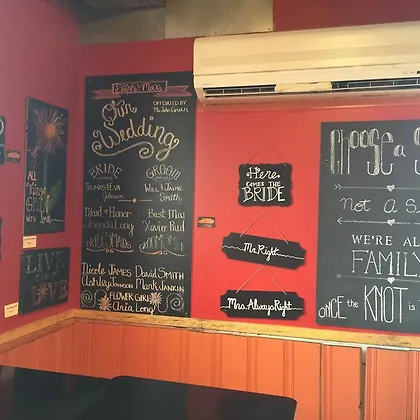 ALL
things
GROW
with Love
LIVE
Our
Wedding
OFFICIATED BY
BRIDE
GROOM
THOMASTEVA
Johnson
Will Wayne
Smith
Maid of Honor
Amanda Long
Best Man
Xavier Reid
BRIDESMAIDS
GROOMSMEN
Nicole JAMES David SMITH
Ashley JOHNSON Mark JANKIN
FLOWER GIRL
Aria Long
Here
COMES THE
BRIDE
Mr. Right
Mrs. Always Right
CHOOSE a S
NOT A S
WE'RE AL
FAMILY
ONCE the KNOT is